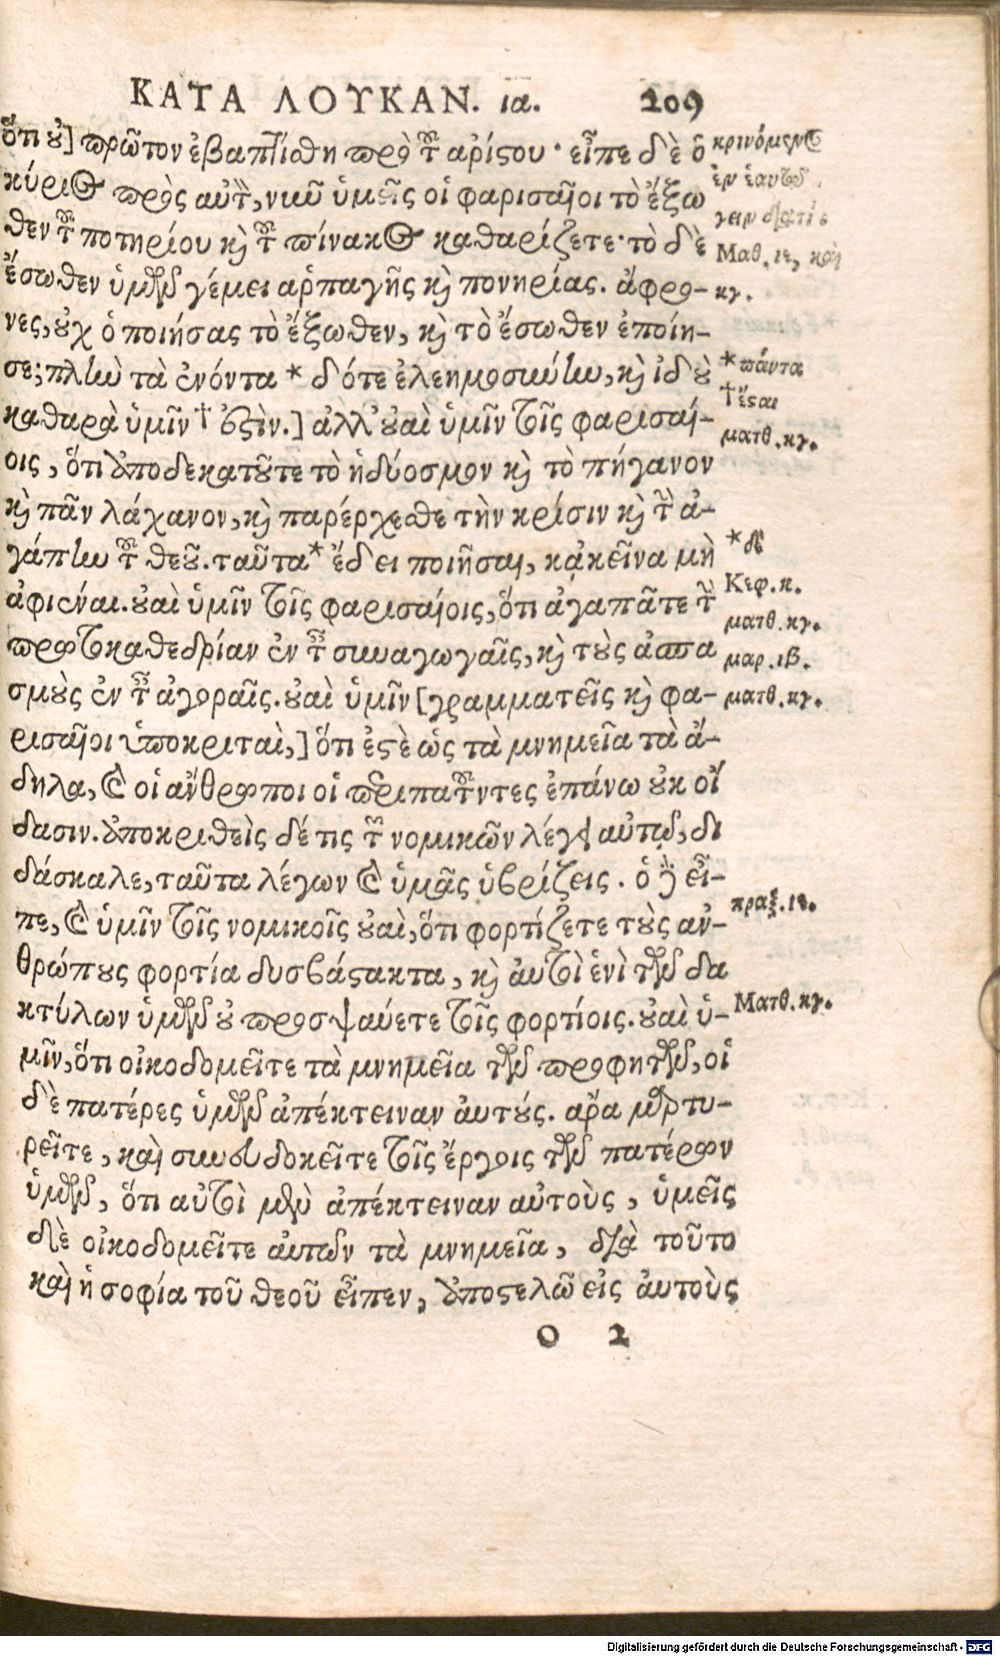 ΚΑΤΑ ΛΟΥΚΑΝ. ια. 209
ὅτι οὐ] πρῶτον ἐβαπτίσθη πρὸ τοῦ ἀρίστου· εἶπε δὲ ὁ
κύριος πρὸς αὐτὸν, νῦν ὑμεῖς οἱ φαρισαῖοι τὸ ἔξω
θεν τοῦ ποτηρίου καὶ τοῦ πίνακος καθαρίζετε· τὸ δὲ
ἔσωθεν ὑμῶν γέμει ἁρπαγῆς καὶ πονηρίας. ἄφρο-
νες, οὐχ ὁ ποιήσας τὸ ἔξωθεν, καὶ τὸ ἔσωθεν ἐποίη-
σε; πλὴν τὰ ἐνόντα * δότε ἐλεημοσύνην, καὶ ἰδοὺ
καθαρὰ ὑμῖν † ἐστὶν.] ἀλλ' οὐαὶ ὑμῖν τοῖς φαρισαί-
οις, ὅτι ἀποδεκατοῦτε τὸ ἡδύοσμον καὶ τὸ πήγανον
καὶ πᾶν λάχανον, καὶ παρέρχεσθε τὴν κρίσιν καὶ τὴν ἀ-
γάπην τοῦ θεοῦ. ταῦτα * ἔδει ποιῆσαι, κᾀκεῖνα μὴ
ἀφιέναι. οὐαὶ ὑμῖν τοῖς φαρισαίοις, ὅτι ἀγαπᾶτε τὴν
πρωτοκαθεδρίαν ἐν ταῖς συναγωγαῖς, καὶ τοὺς ἀσπα
σμοὺς ἐν ταῖς ἀγοραῖς. οὐαὶ ὑμῖν [γραμματεῖς καὶ φα-
ρισαῖοι ὑποκριταὶ,] ὅτι ἐστὲ ὡς τὰ μνημεῖα τὰ ἄ-
δηλα, καὶ οἱ ἄνθρωποι οἱ περιπατοῦντες ἐπάνω οὐκ οἴ
δασιν. ἀποκριθεὶς δέ τις τῶν νομικῶν λέγει αὐτῷ, δι
δάσκαλε, ταῦτα λέγων καὶ ὑμᾶς ὑβρίζεις. ὁ δὲ εἶ-
πε, καὶ ὑμῖν τοῖς νομικοῖς οὐαὶ, ὅτι φορτίζετε τοὺς ἀν-
θρώπους φορτία δυσβάστακτα, καὶ αὐτοὶ ἑνὶ τῶν δα
κτύλων ὑμῶν οὐ προσψαύετε τοῖς φορτίοις. οὐαὶ ὑ-
μῖν, ὅτι οἰκοδομεῖτε τὰ μνημεῖα τῶν προφητῶν, οἱ
δὲ πατέρες ὑμῶν ἀπέκτειναν αὐτούς. ἄρα μαρτυ-
ρεῖτε, καὶ συνευδοκεῖτε τοῖς ἔργοις τῶν πατέρων
ὑμῶν, ὅτι αὐτοὶ μὲν ἀπέκτειναν αὐτοὺς, ὑμεῖς
δὲ οἰκοδομεῖτε αὐτῶν τὰ μνημεῖα, διὰ τοῦτο
καὶ ἡ σοφία τοῦ θεοῦ εἶπεν, ἀποστελῶ εἰς αὐτοὺς
Ο 2
κρινόμενος
ἐν ἑαυτῷ
Μαθ. ιε, καὶ
κγ.
* πάντα
† ἔσται
ματθ. κγ.
* δὲ
Κεφ. κ.
ματθ. κγ.
μαρ. ιβ.
ματθ. κγ.
πραξ. ιε.
Ματθ. κγ.
Digitalisierung gefördert durch die Deutsche Forschungsgemeinschaft - DFG